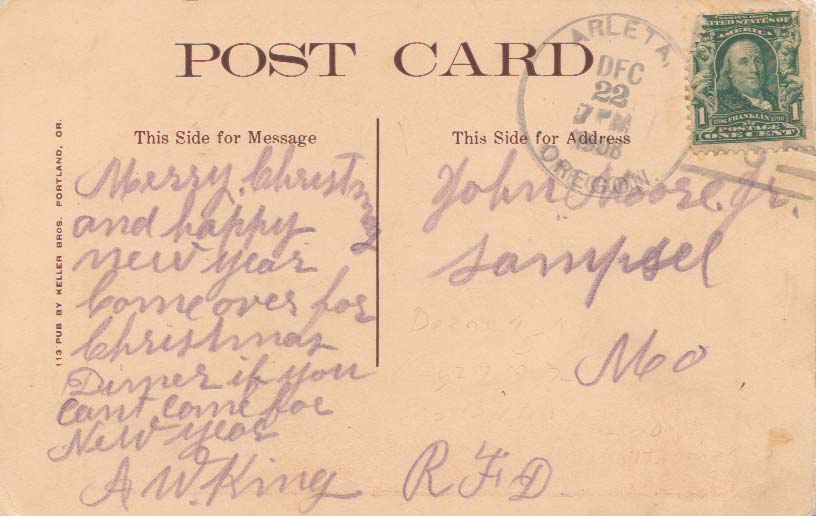 POST CARD
This Side for Message
This Side for Address
113 PUB BY KELLER BROS. PORTLAND, OR.
ARLETA,
DEC
22
7 PM
1908
OREGON
SERIES 1902
UNITED STATES OF
AMERICA
1706 FRANKLIN 1790
1 1
POSTAGE
ONE CENT
Merry Christmas
and happy
new year
Come over for
Christmas
Dinner if you
cant come for
New year
A W. King
John Moore. Jr.
Sampsel
Mo
R F D